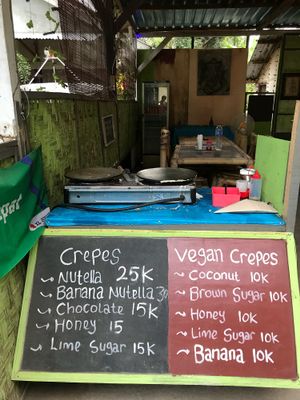 Crepes
Nutella 25K
Banana Nutella 30
Chocolate 15K
Honey 15
Lime Sugar 15K
Vegan Crepes
Coconut 10K
Brown Sugar 10K
Honey 10K
Lime Sugar 10K
Banana 10K